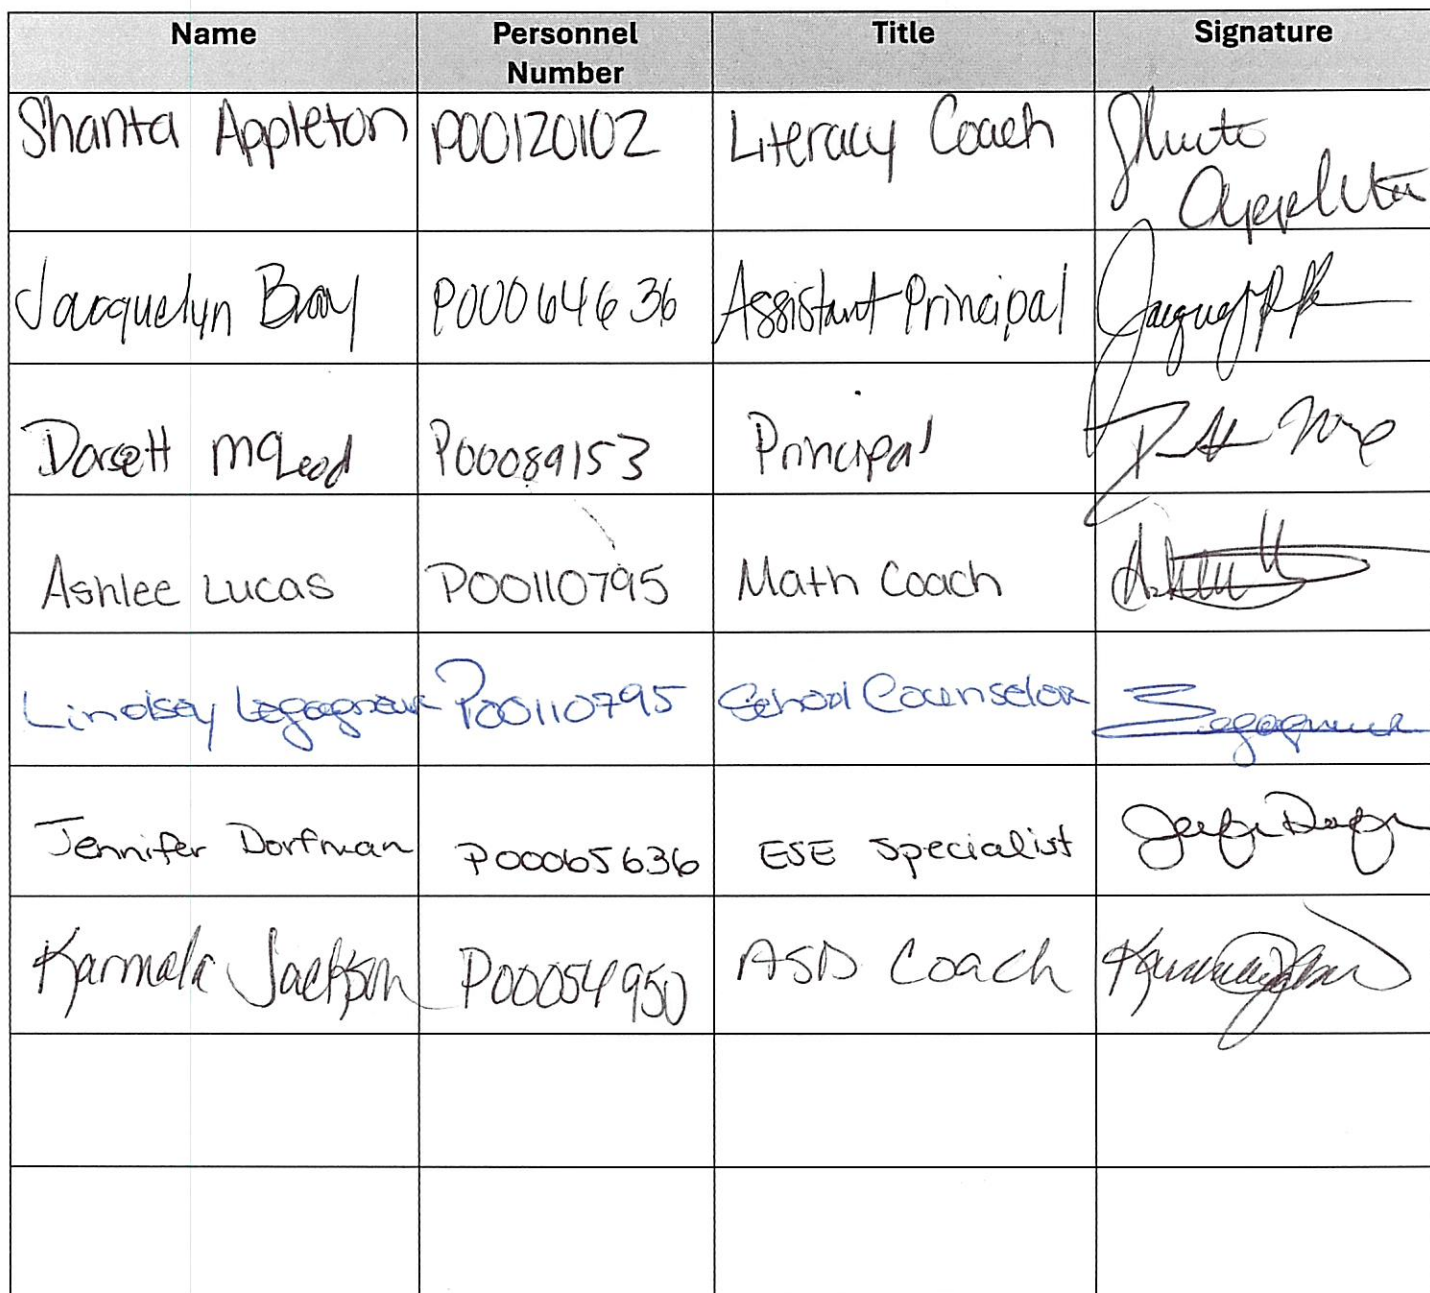 Name Personnel Number Title Signature
Shanta Appleton P00120102 Literacy Coach Appleton
Jacquelyn Bray P00064636 Assistant Principal
Dorsett McLeod P00089153 Principal
Ashlee Lucas P00110795 Math Coach
Lindsey P00110795 School Counselor
Jennifer Dorfman P00065636 ESE Specialist
Karmala Jackson P00054950 ASD Coach